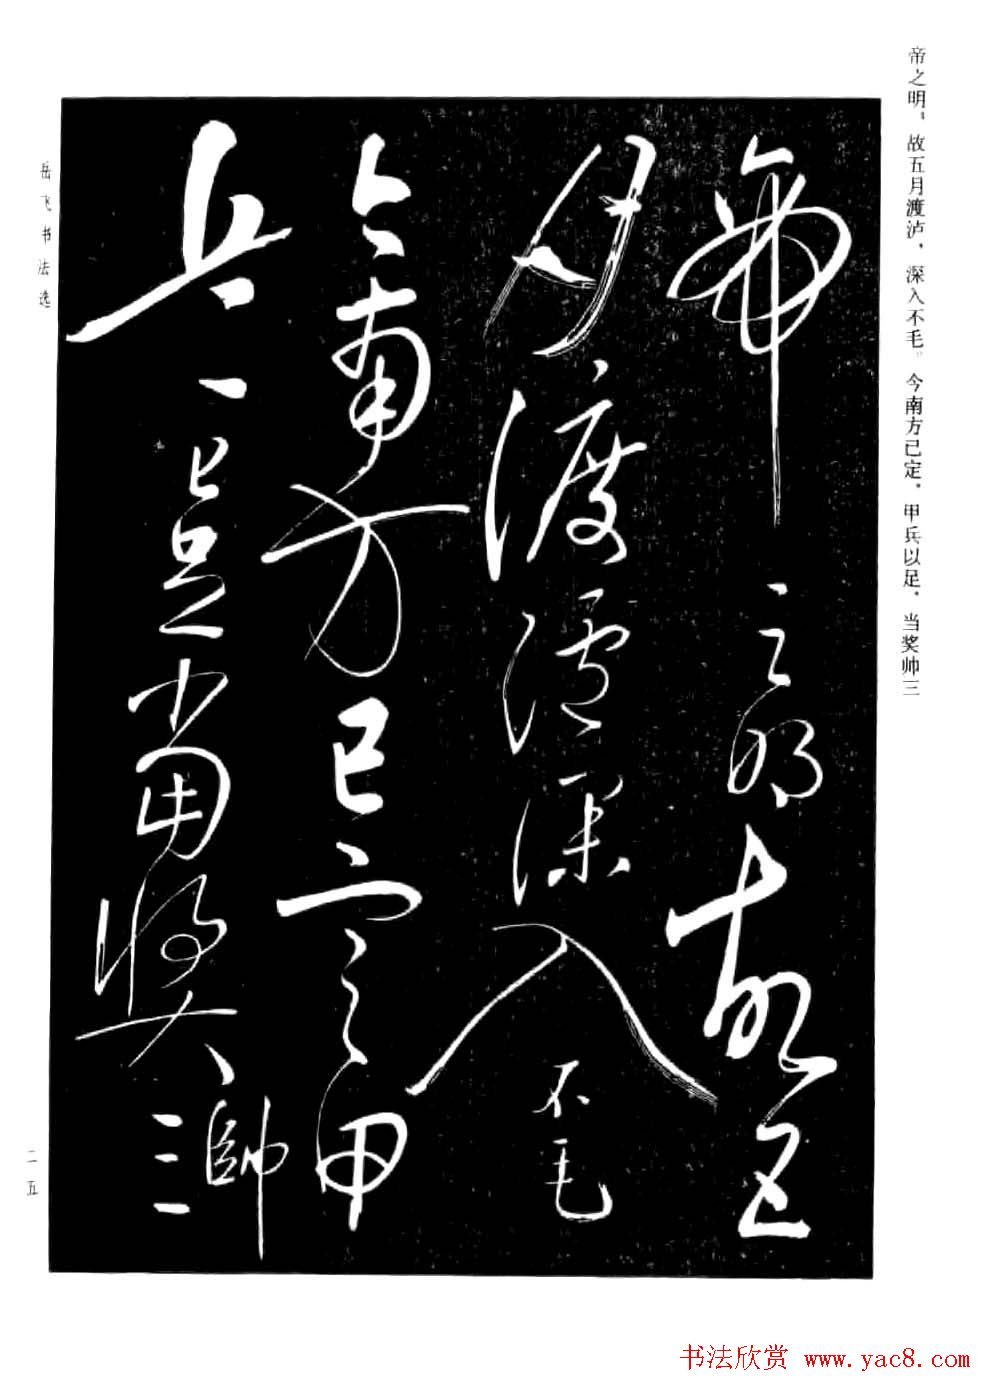 帝之明，故五月渡泸，深入不毛。今南方已定，甲兵以足，当奖帅三
帝之明故五
月渡瀘深入不毛
今南方已定甲
兵以足當獎帥三
岳飞书法选
二五
书法欣赏 www.yac8.com